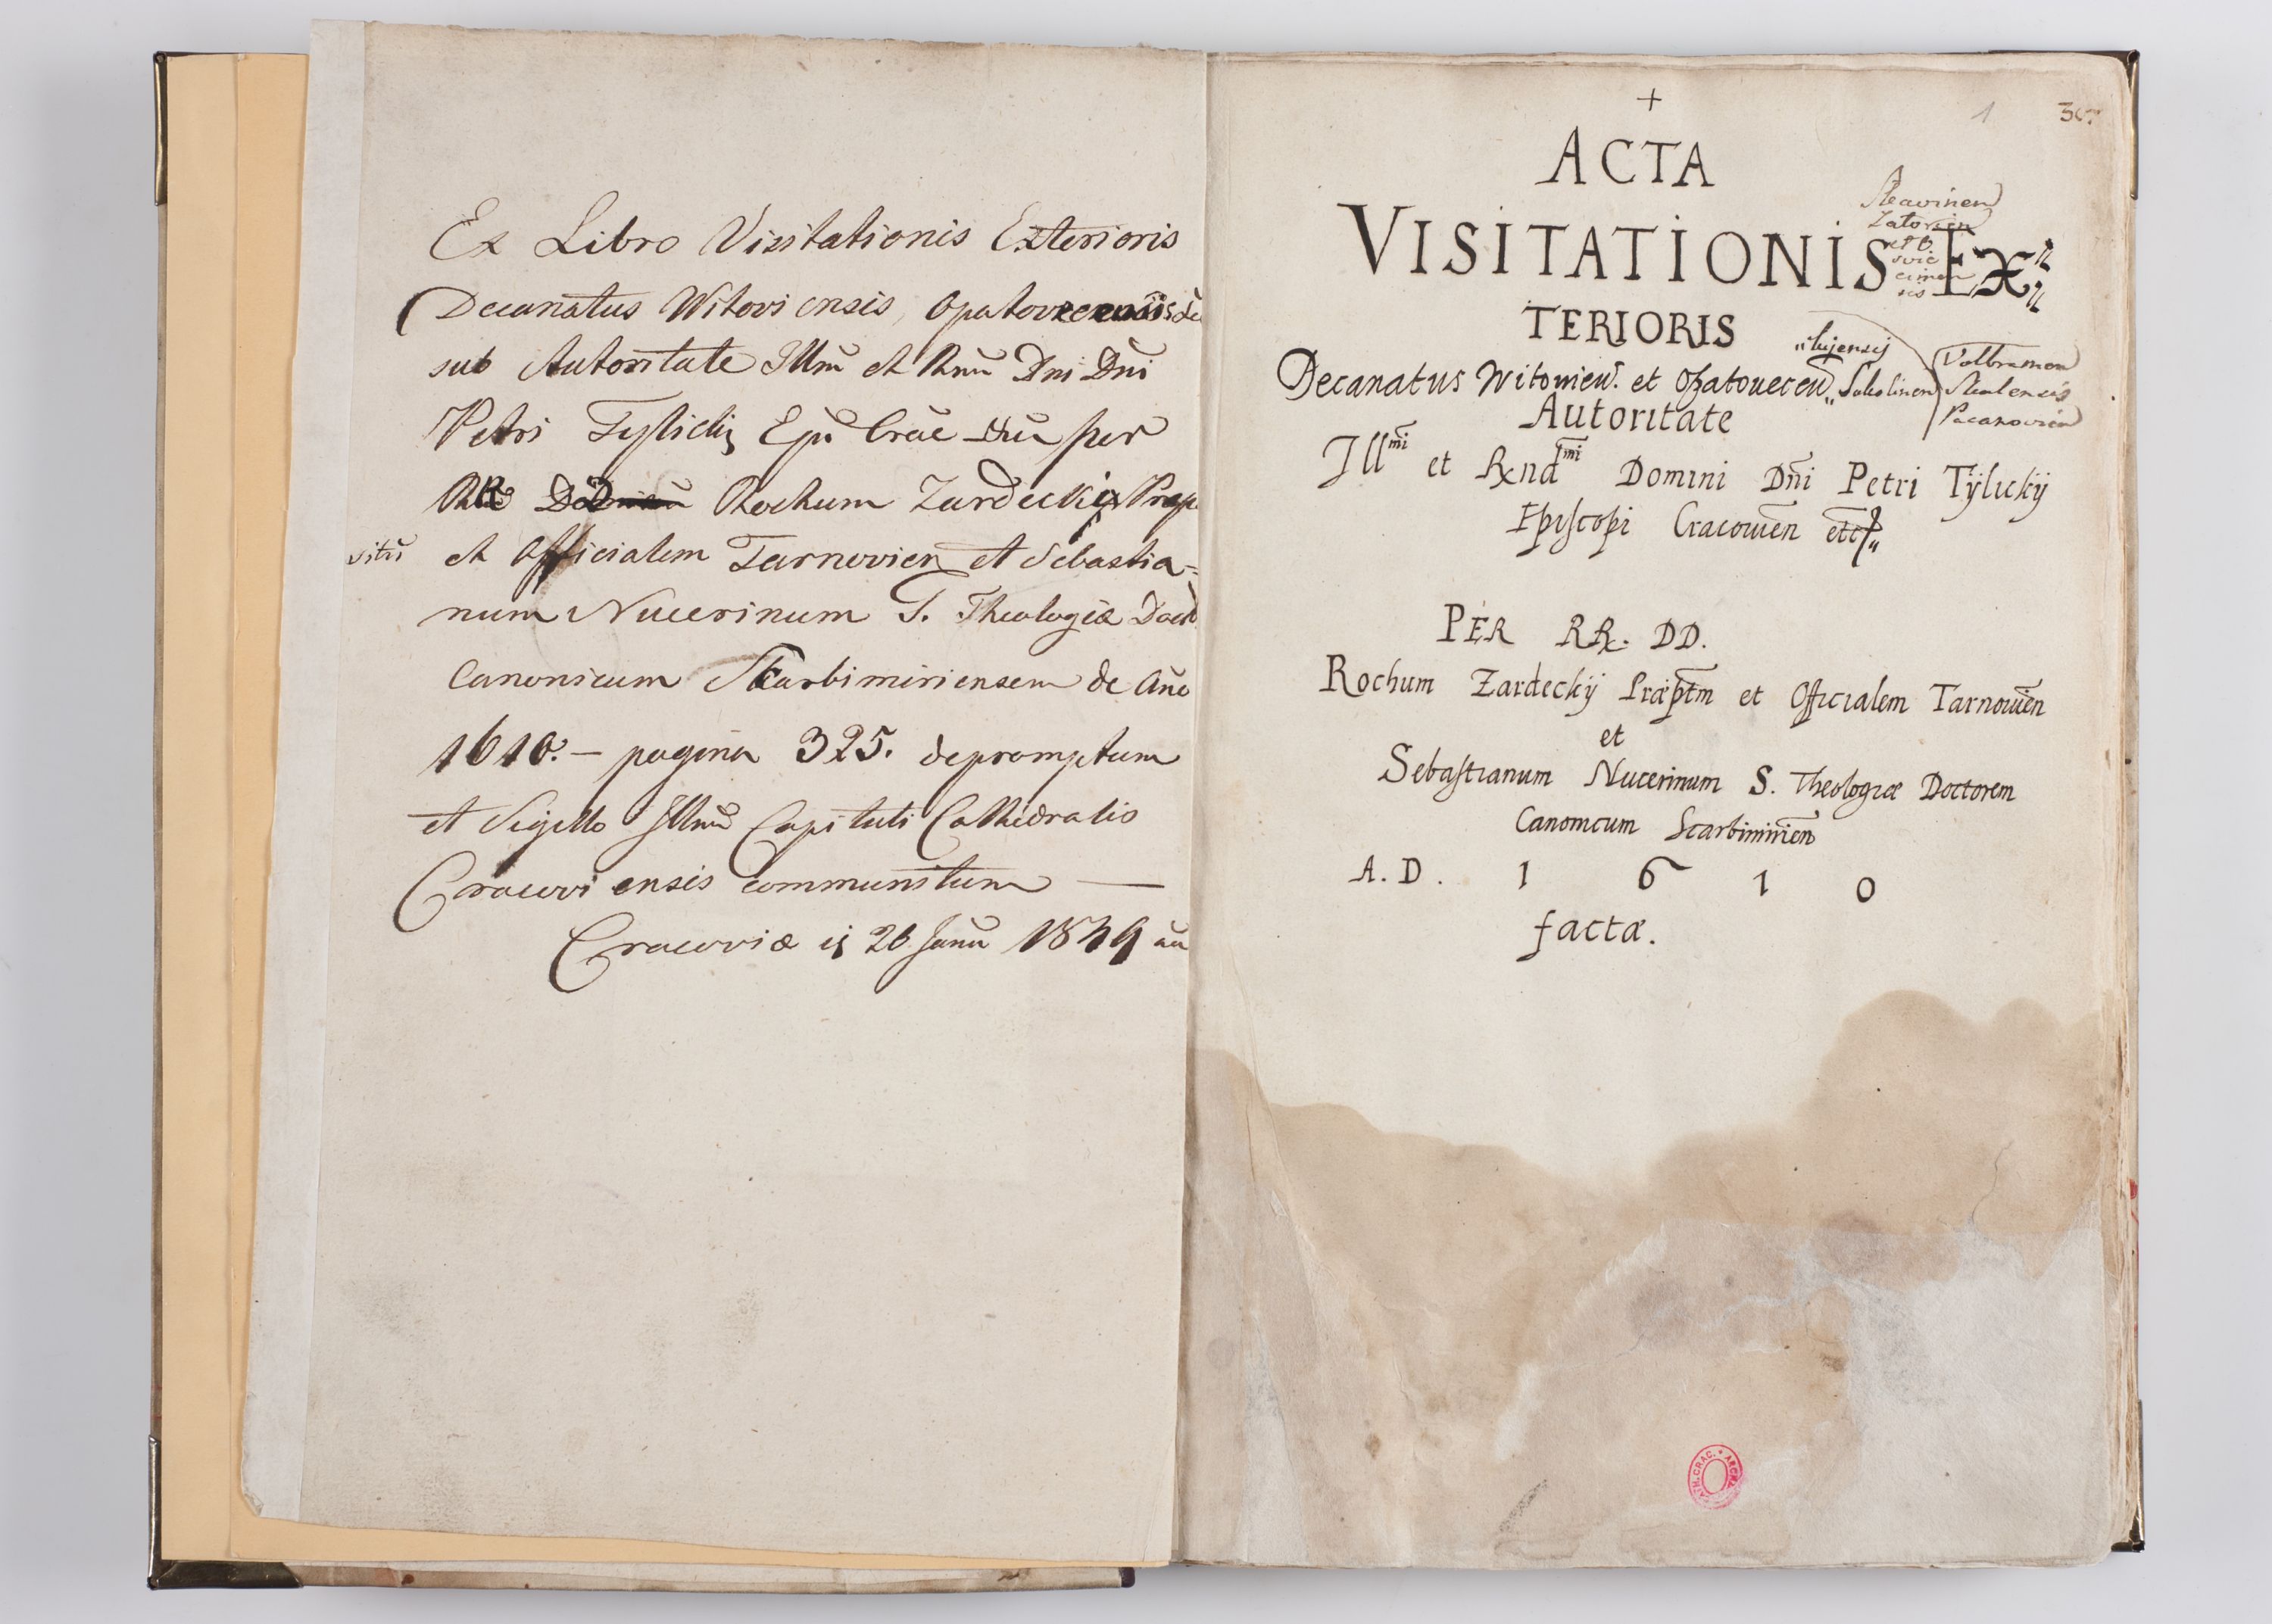 Ex Libro Visitationis Exterioris
Decanatus Witoviensis, Opatovecensis
sub Autoritate Illm̃ et Rnm̃ Dni Dni
Petri Tylicki Epi Crac per
Rochum Zardecki Prepo
situ et Officialem Tarnovien et Sebastia=
num Nucerinum S. Theologiæ Doct
Canonicum Skarbimiriensem de Ano
1610. – pagina 325. depromptum
et Sigillo Illm̃ Capituli Cathedralis
Cracoviensis communitum —
Cracoviæ 26 Janu
1 307
+
ACTA
VISITATIONIS EX
TERIORIS
Skavinen
Zatorien
Decanatus Witovien. et Opatouecen
Wolbramen
Skalensis
Pacanovien
Autoritate
Illmi et Rndmi Domini Dñi Petri Tÿlickÿ
Episcopi Cracouien etc
PER RR. DD.
Rochum Zardeckÿ Præptm et Officialem Tarnouien
et
Sebastianum Nucerinum S. Theologiæ Doctorem
Canonicum Scarbimirien
A. D. 1 6 1 0
factæ.